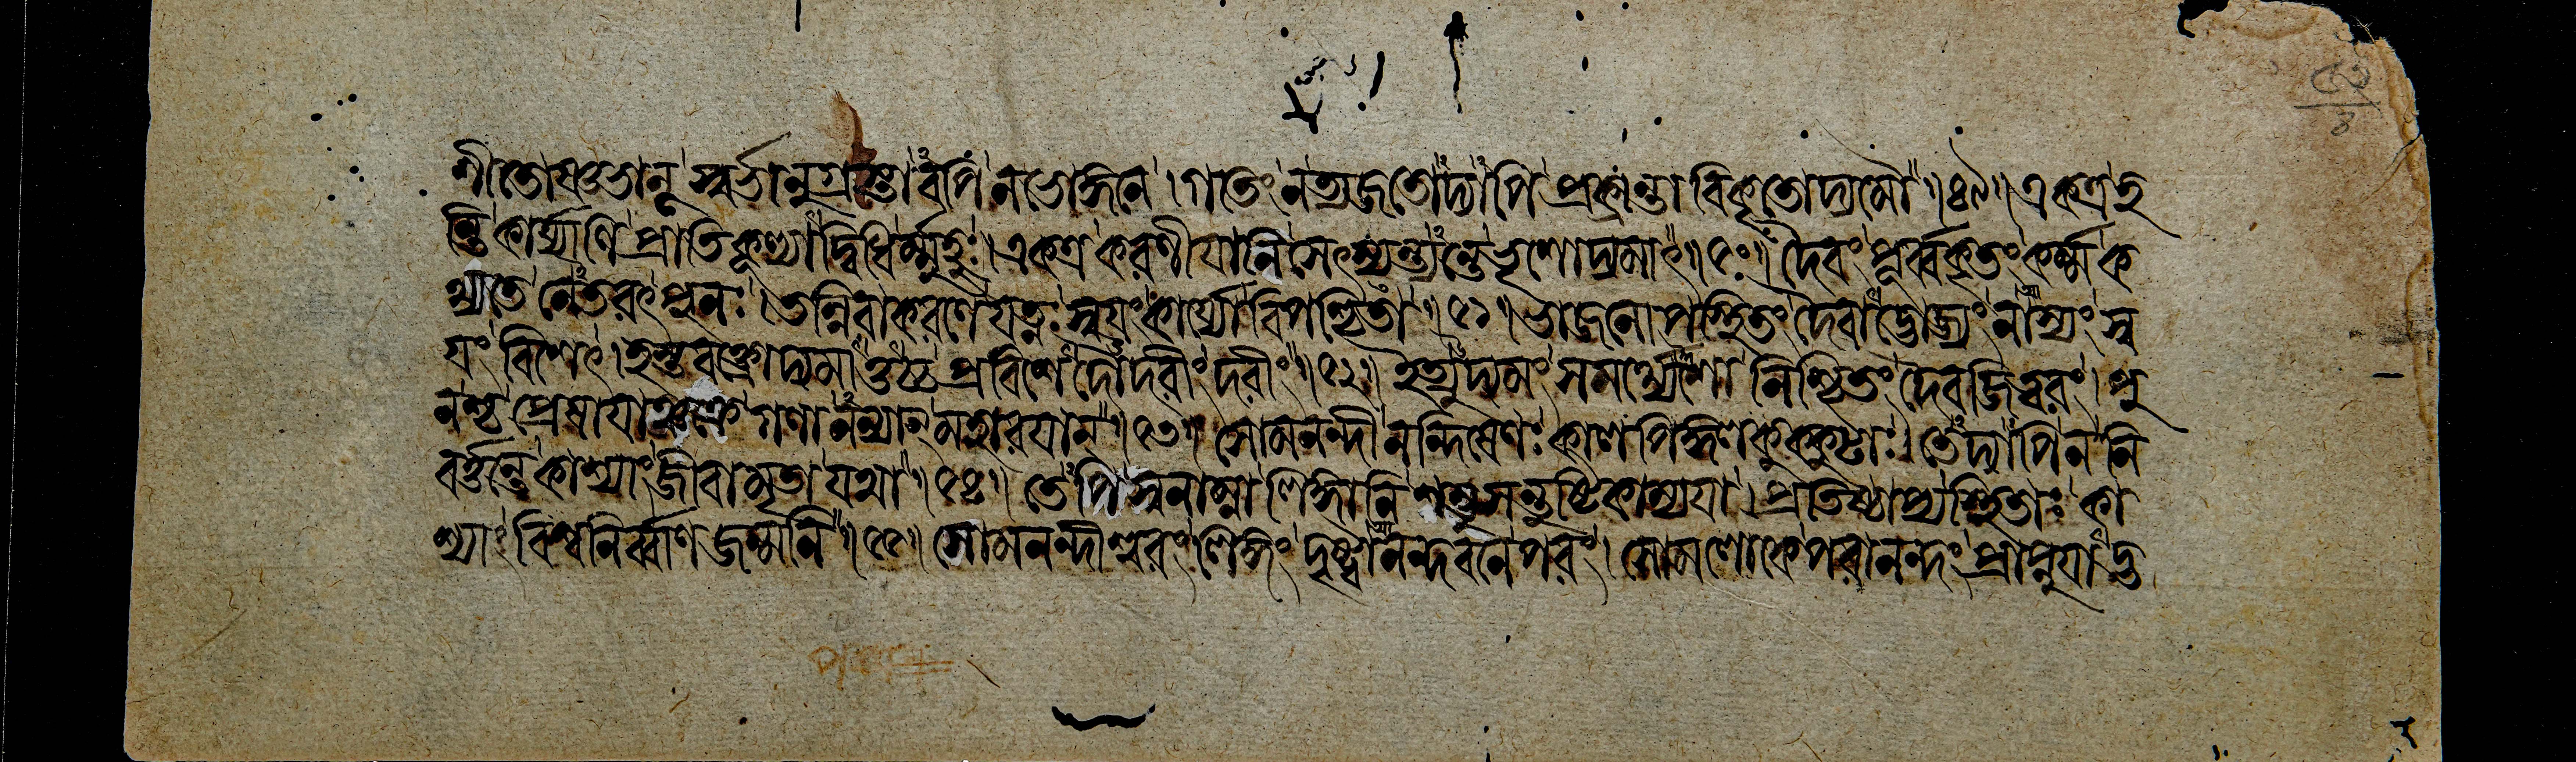 শীতোষ্ণভানূ স্বর্ভানুগ্রস্তাবপি নভোঙ্গনে। গতিং ন ত্যজতোদ্যাপি প্রক্রান্তা বিকৃতোদ্যমৌ॥৪৯॥ একত্র হ
ন্তি কার্য্যাণি প্রাতিকূল্যাদ্বিধির্ম্মুহুঃ। একত্র করণীয়ানি সেৎস্যন্ত্যন্তে ভৃশোদ্যমাৎ॥৫০॥ দৈবং পূর্ব্বকৃতং কর্ম্ম ক
থ্যতে নেতরৎ পুনঃ। তন্নিরাকরণে যত্নঃ স্বয়ং কার্য্যো বিপশ্চিতা॥৫১॥ ভাজনোপস্থিতং দৈবাদ্ভোজ্যং নাস্যং স্ব
য়ং বিশেৎ। হস্তবক্ত্রোদ্যমাত্তচ্চ প্রবিশেদৌদরীং দরীং॥৫২॥ ইত্যুদ্যমং সমর্থ্যেশো নিশ্চিতং দৈবজিত্বরং। পু
নশ্চ প্রেষায়াঞ্চক্রে গণানন্যান্ মহারয়ান্॥৫৩॥ সোমনন্দী নন্দিষেণঃ কাল পিঙ্গলকুক্কুটাঃ। তেদ্যাপি ন নি
বর্ত্তন্তে কাশ্যাং জীবা মৃতা যথা॥৫৪॥ তেপি স্বনাম্না লিঙ্গানি শম্ভুসন্তুষ্টিকাম্যয়া। প্রতিষ্ঠাপ্য স্থিতাঃ কা
শ্যাং বিশ্বনির্ব্বাণজন্মনি॥৫৫॥ সোমনন্দীশ্বরং লিঙ্গং দৃষ্ট্বানন্দবনে পরং। সোমলোকে পরানন্দং প্রাপ্নুয়াদ্ভ